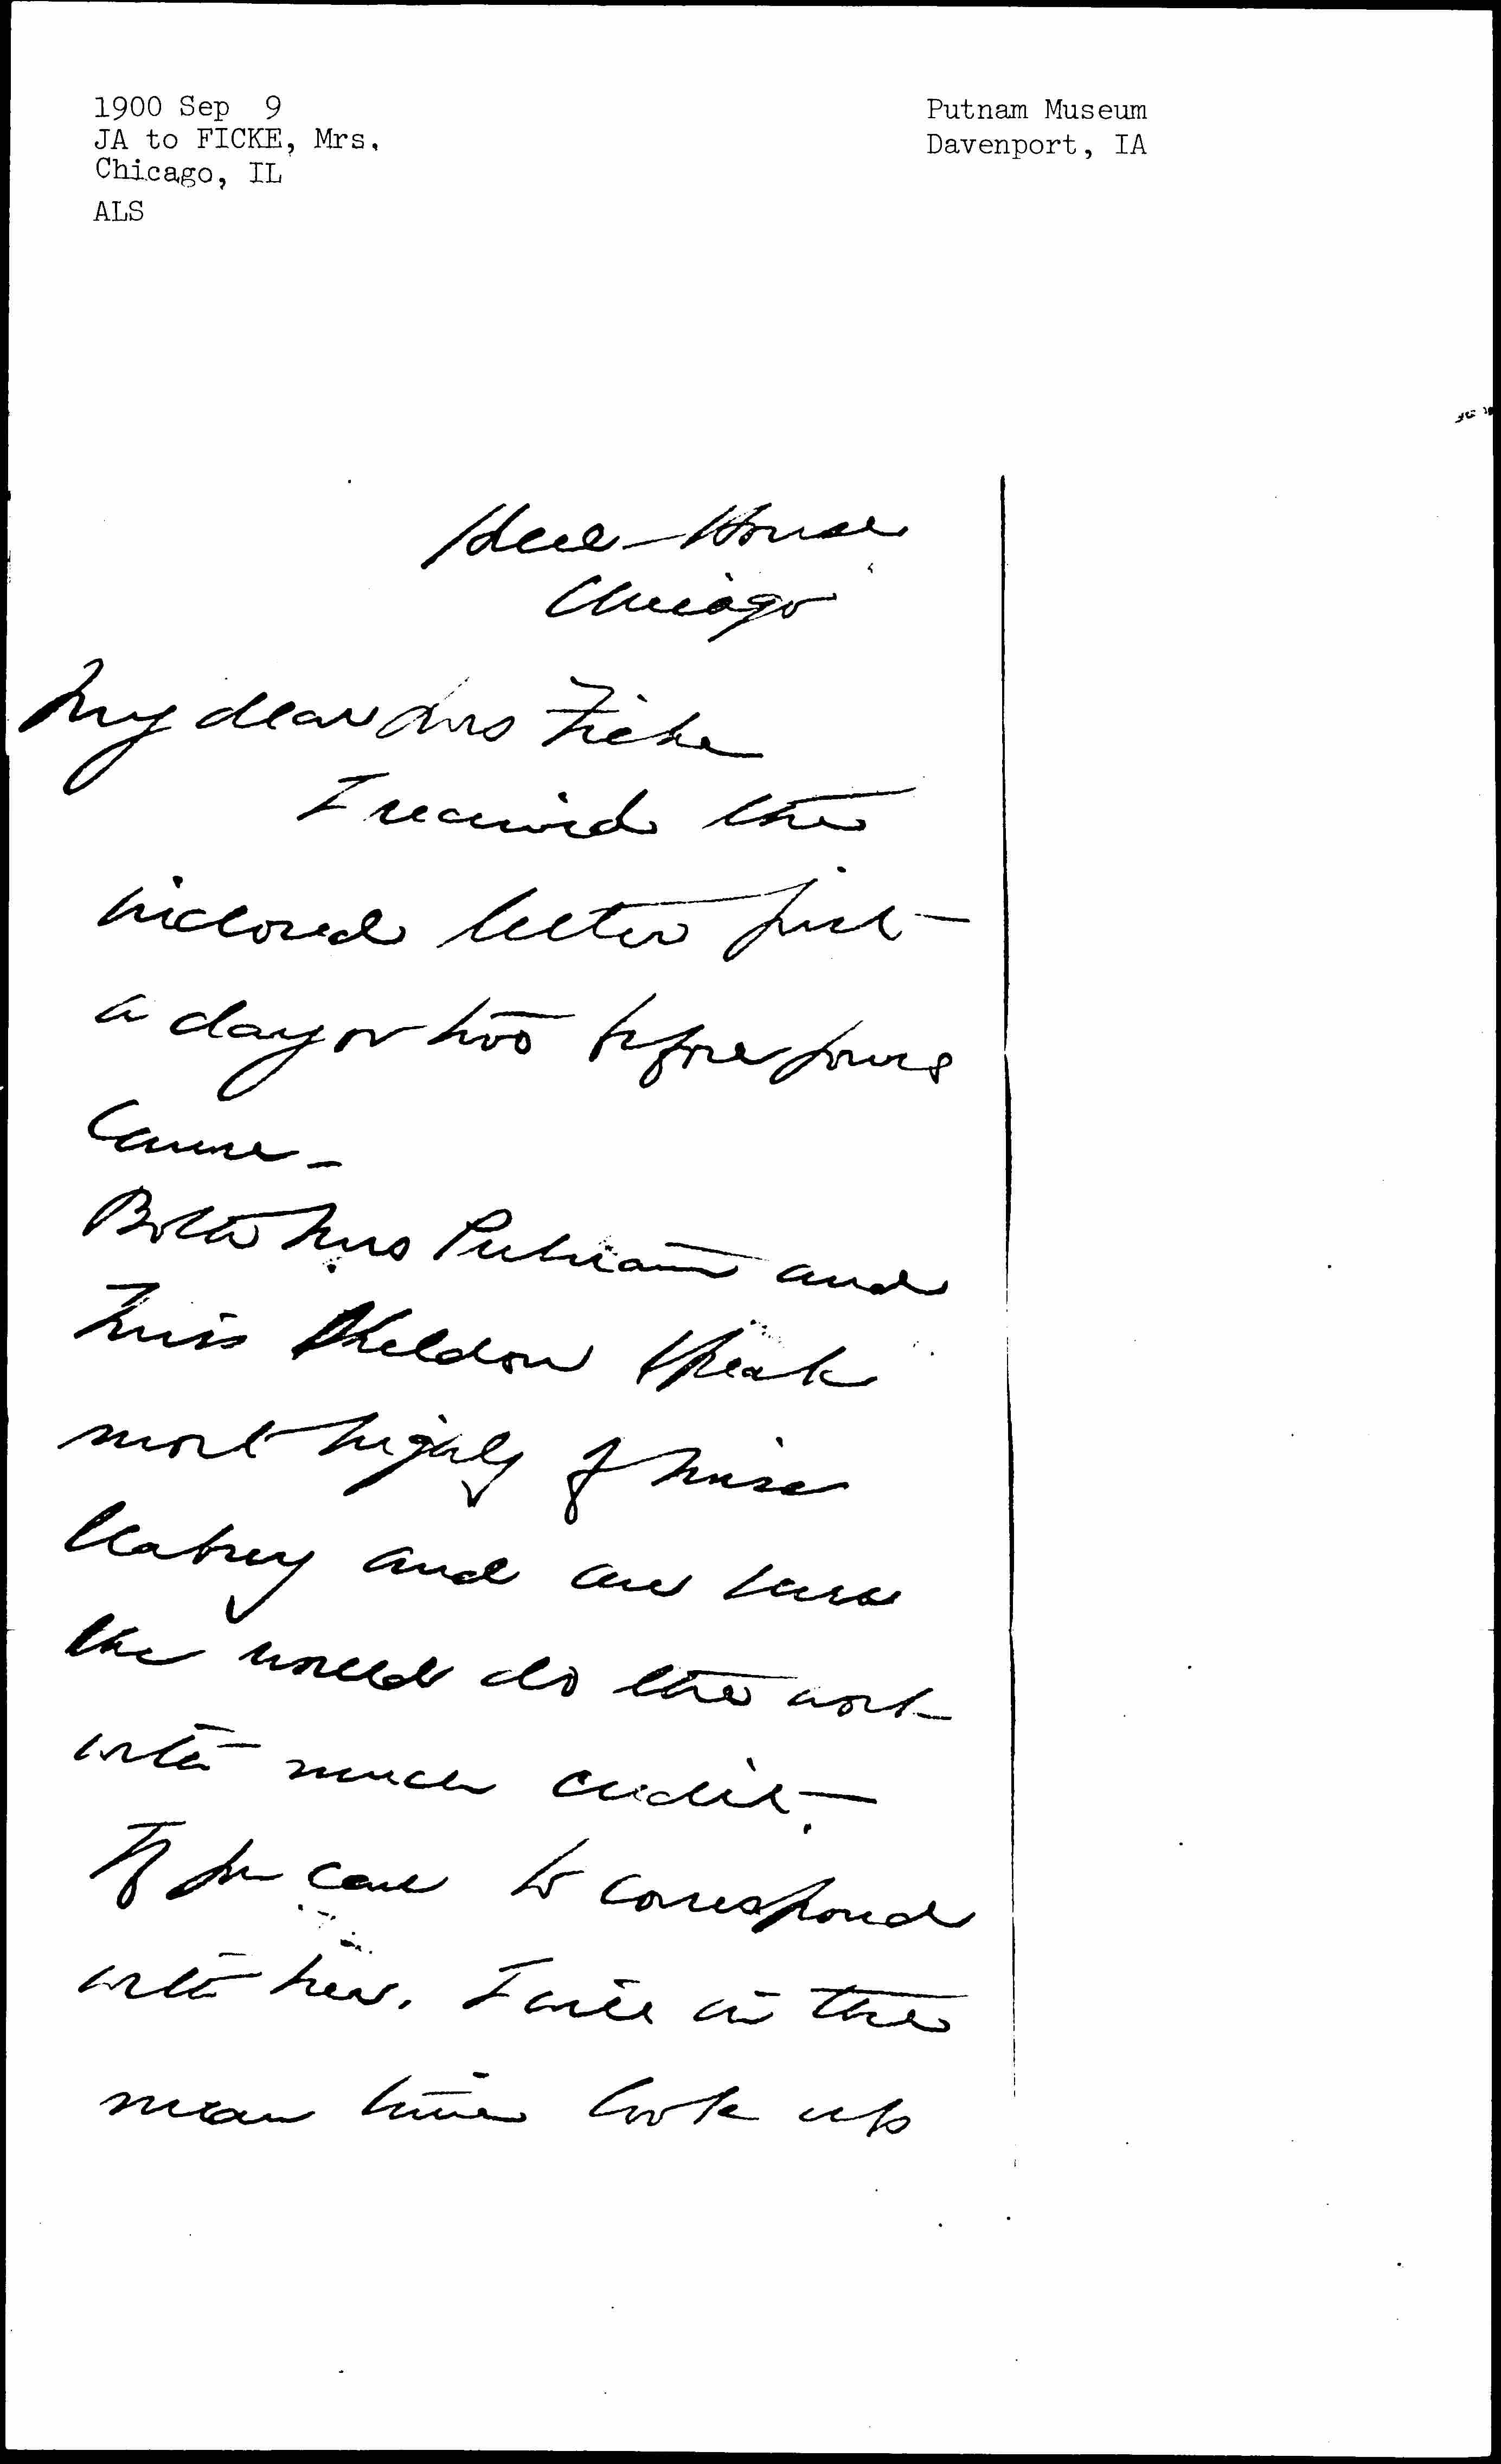 1900 Sep 9
JA to FICKE, Mrs.
Chicago, IL
ALS
Putnam Museum
Davenport, IA
Hull-House
Chicago
My dear Mrs Ficke
I received the
inclosed letter just
a day or two before yours
came –
Both Mrs Putnam and
Miss Sheldon speak
most highly of Miss
and are sure
she would do the work
with much credit.
If you care to correspond
with her. I will in the
mean time look up